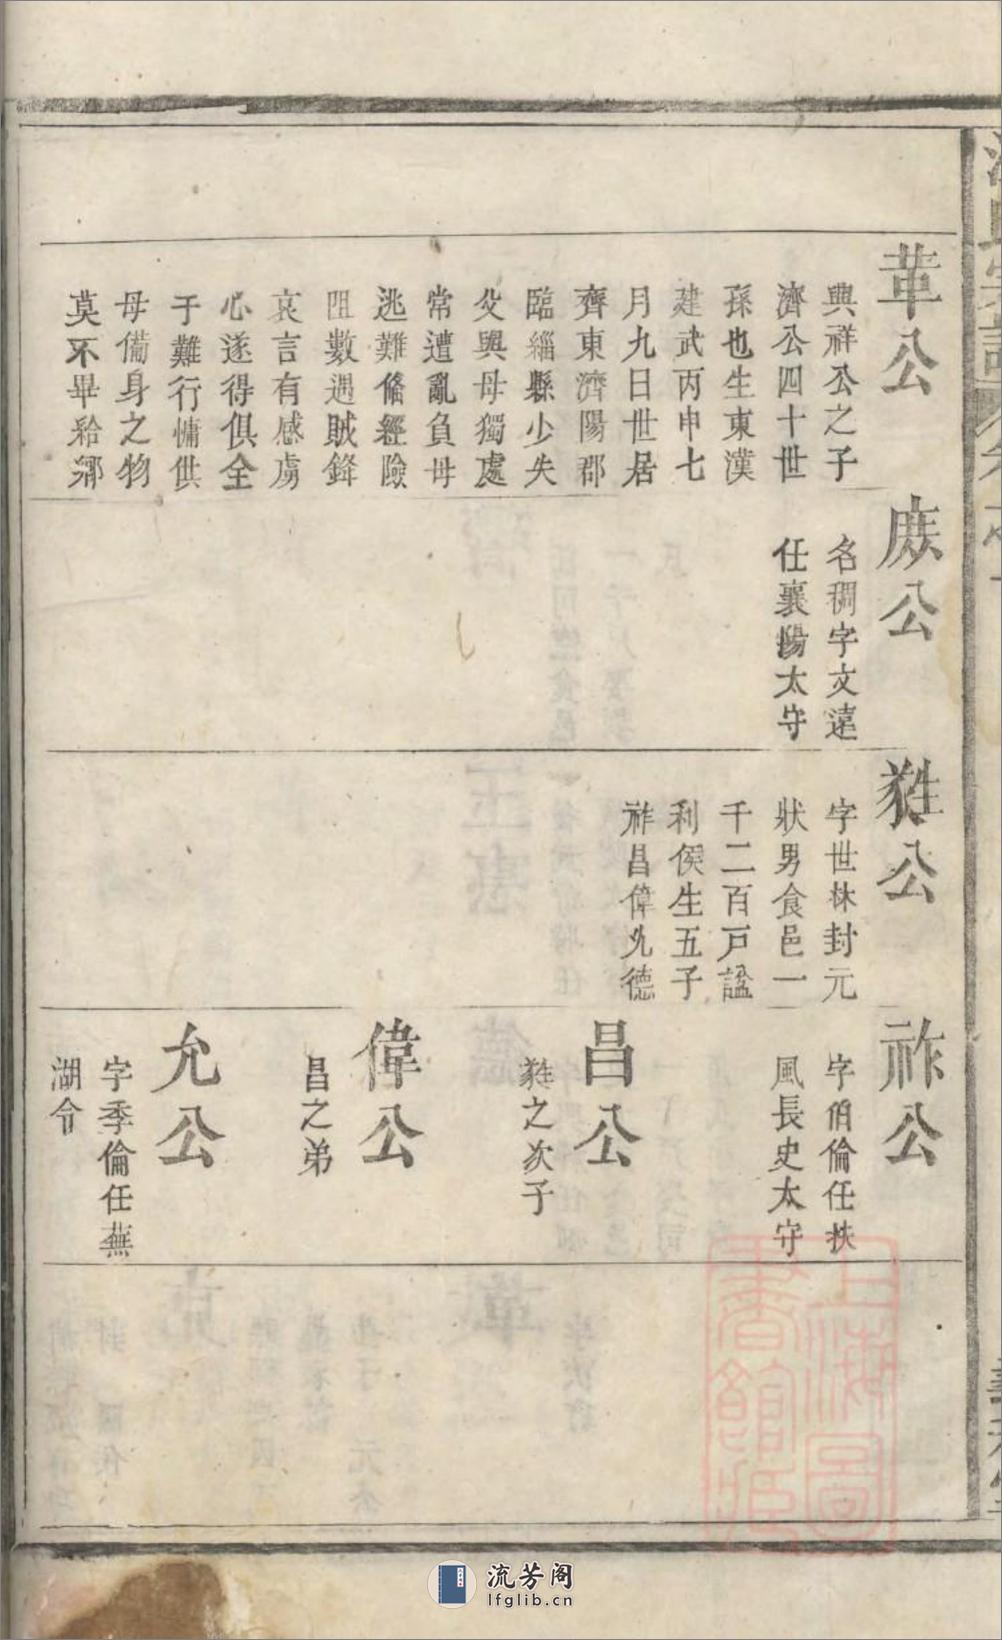 革公
興祥公之子
濟公四十世
孫也生東漢
建武丙申七
月九日世居
齊東濟陽郡
臨緇縣少失
父與母獨處
常遭亂負母
逃難俻經險
阻數遇賊鋒
哀言有感虜
心遂得俱全
于難行慵供
母僃身之物
莫不畢給鄉
庶公
名稠字文遠
任襄陽太守
蕤公
字世林封元
狀男食邑一
千二百戸諡
利侯生五子
祚昌偉允德
祚公
字伯倫任扶
風長史太守
昌公
蕤之次子
偉公
昌之弟
允公
字季倫任蕪
湖令
上海圖
書館藏
流芳阁
lfglib.cn